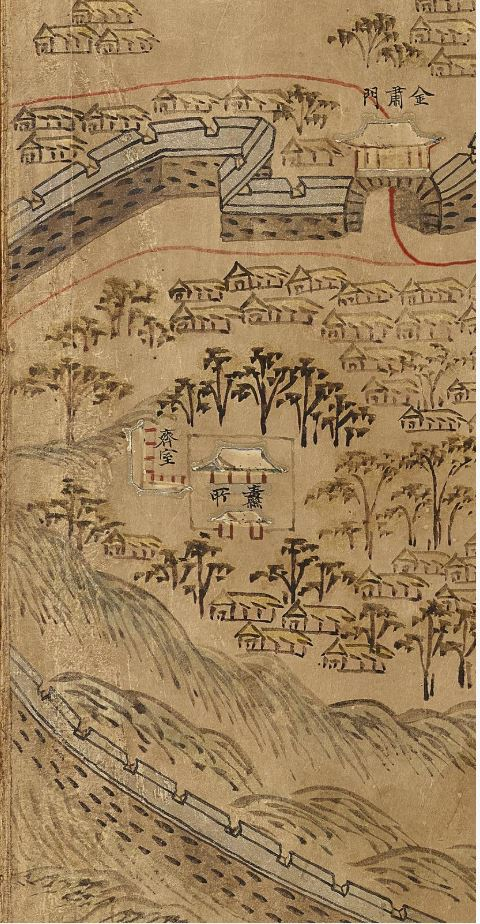 金肅門
齋室
纛所